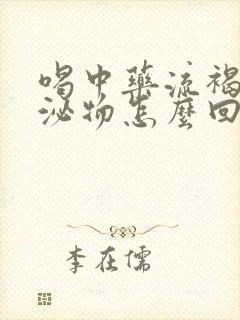 喝中藥流褐
泌物怎麼回
李在儒